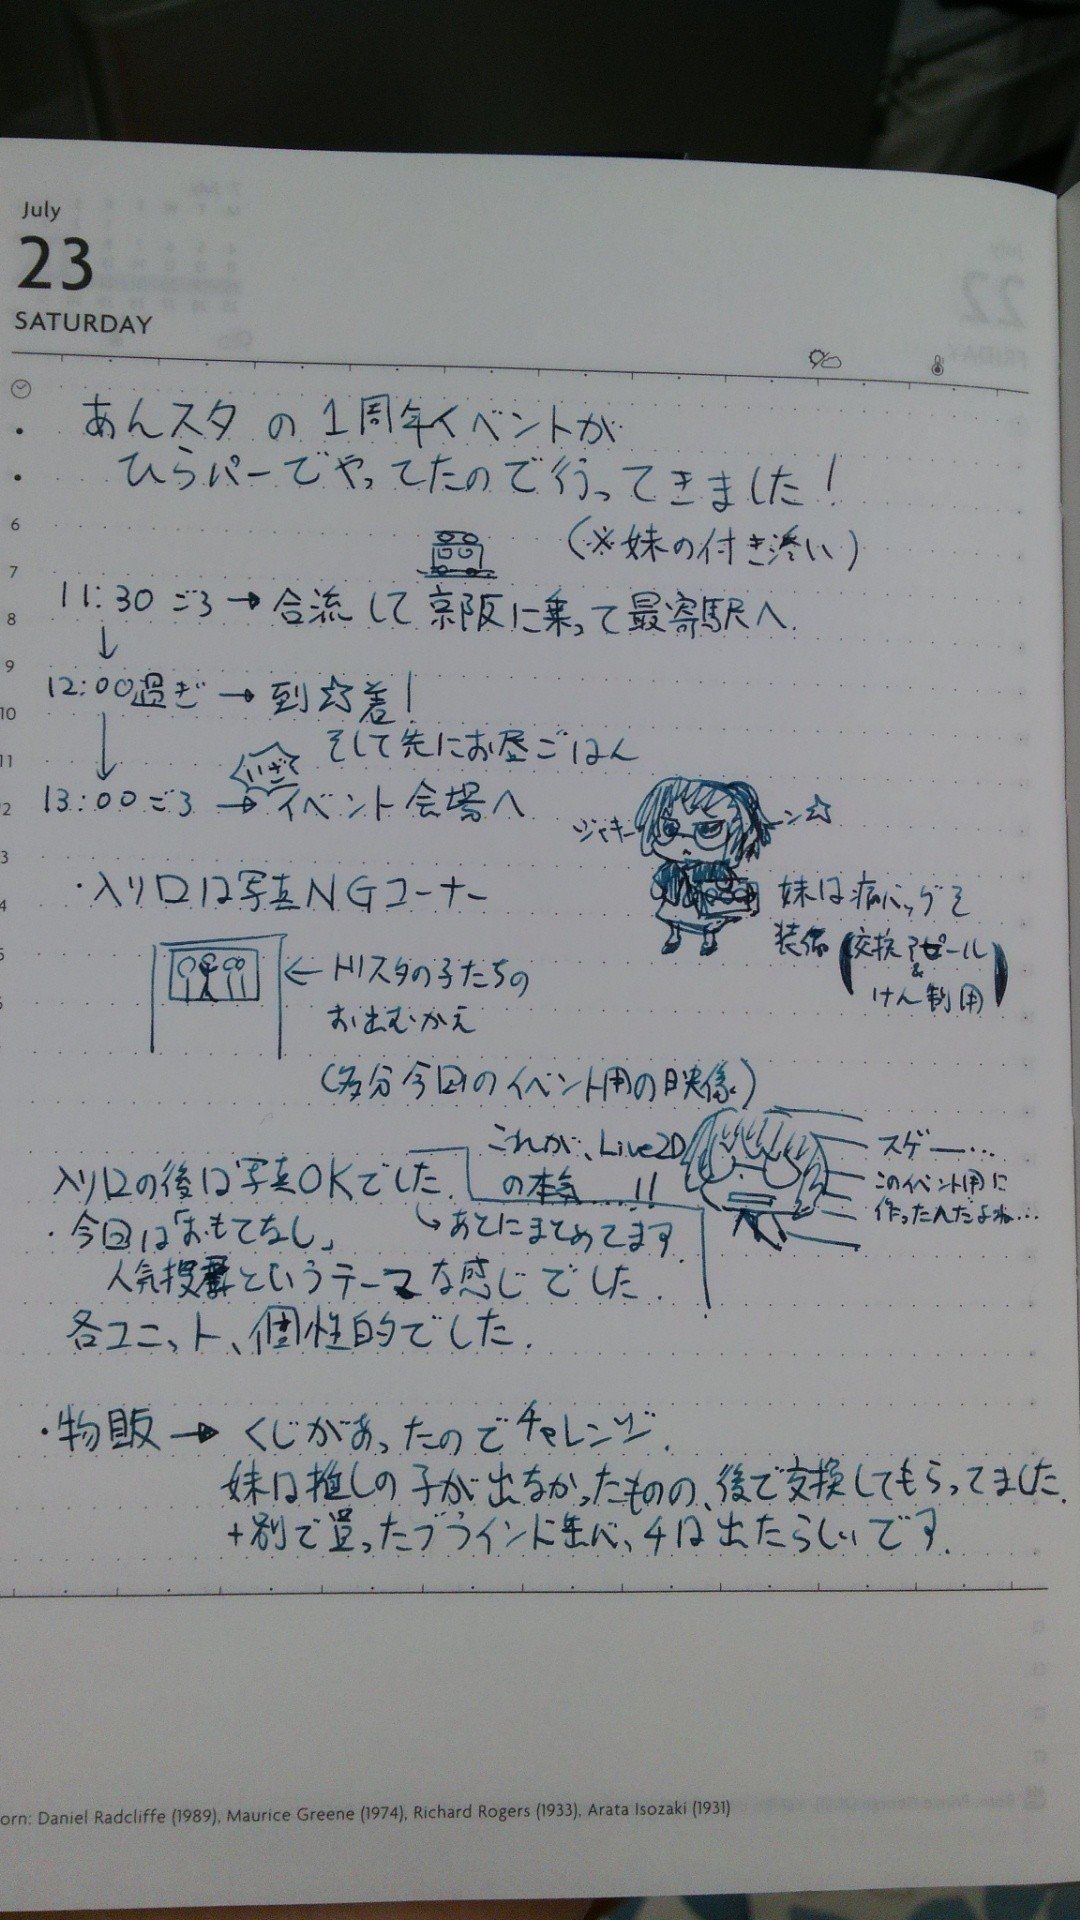 July
23
SATURDAY
あんスタの1周年イベントが
ひらパーでやってたので行ってきました!
(※妹の付き添い)
11:30ごろ→合流して京阪に乗って最寄駅へ.
↓
12:00過ぎ→到☆着!
そして先にお昼ごはん
↓
いざ
13:00ごろ→イベント会場へ
ジャキーン☆
妹は痛バッグを
装備(交換アピール
&
けん制用)
・入り口は写真NGコーナー
←トリスタの子たちの
お出むかえ
(多分今回のイベント用の映像)
これが、Live2D
の本気…!!
スゲー…
このイベント用に
作ったんだよね…
入り口の後は写真OKでした.
↳あとにまとめてます.
・今回は「おもてなし」
人気投票というテーマな感じでした.
各ユニット、個性的でした.
・物販→くじがあったのでチャレンジ.
妹は推しの子が出なかったものの、後で交換してもらってました.
+別で買ったブラインド缶バッチは出たらしいです.
6
7
8
9
10
11
12
3
4
5
orn: Daniel Radcliffe (1989), Maurice Greene (1974), Richard Rogers (1933), Arata Isozaki (1931)